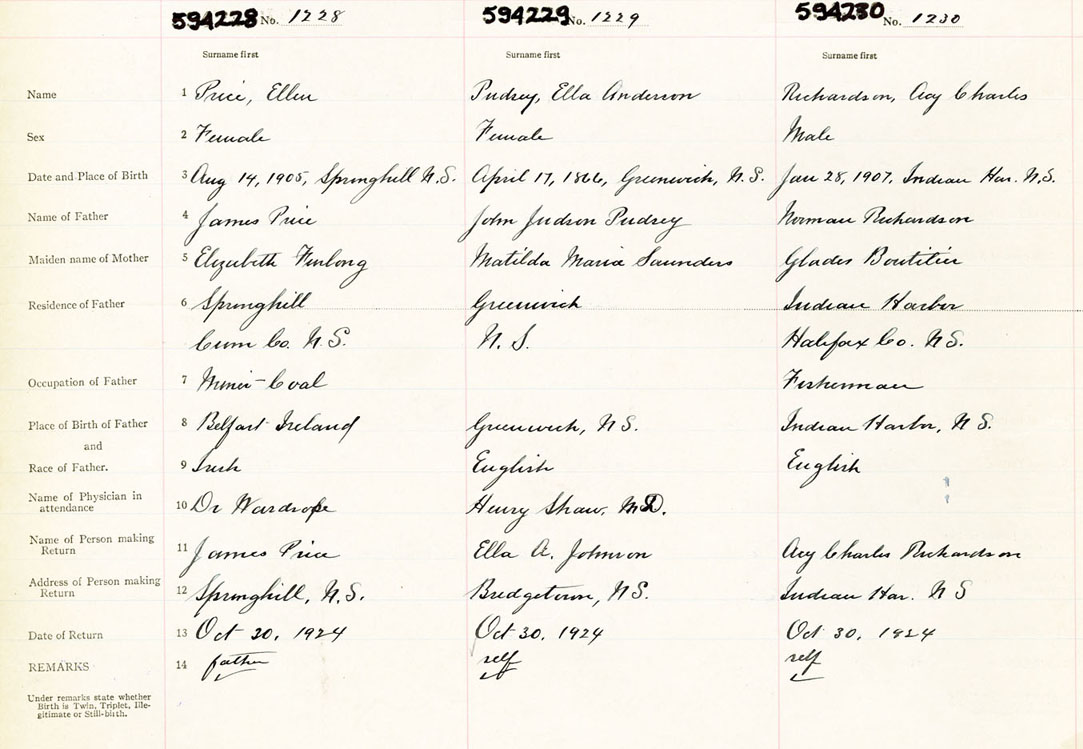 594228 No. 1228 594229 No. 1229 594230 No. 1230
Surname first Surname first Surname first
Name 1 Price, Ellen Pudsey, Ella Anderson Richardson, Acy Charles
Sex 2 Female Female Male
Date and Place of Birth 3 Aug 14, 1905, Springhill N.S. April 17, 1866, Greenwich, N.S. Jan 28, 1907, Indian Har. N.S.
Name of Father 4 James Price John Judson Pudsey Norman Richardson
Maiden name of Mother 5 Elizabeth Furlong Matilda Maria Saunders Glades Boutilier
Residence of Father 6 Springhill Greenwich Indian Harbor
Cum Co. N.S. N.S. Halifax Co. N.S.
Occupation of Father 7 Miner-Coal Fisherman
Place of Birth of Father 8 Belfast Ireland Greenwich, N.S. Indian Harbor, N.S.
and
Race of Father. 9 Irish English English
Name of Physician in
attendance 10 Dr Wardrope Henry Shaw, M.D.
Name of Person making
Return 11 James Price Ella A. Johnson Acy Charles Richardson
Address of Person making
Return 12 Springhill, N.S. Bridgetown, N.S. Indian Har. N S
Date of Return 13 Oct 30, 1924 Oct 30, 1924 Oct 30, 1924
REMARKS 14 father self self
Under remarks state whether
Birth is Twin, Triplet, Ille-
gitimate or Still-birth.